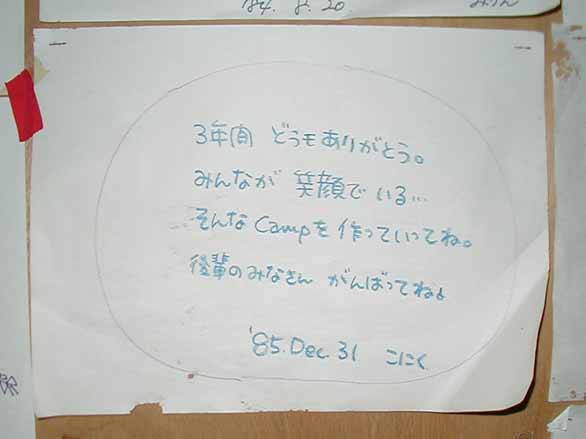 '84. 8. 20.
3年間 どうもありがとう。
みんなが 笑顔で いる…
そんな Campを 作っていってね。
後輩のみなさん がんばってねよ
'85. Dec. 31 こにく